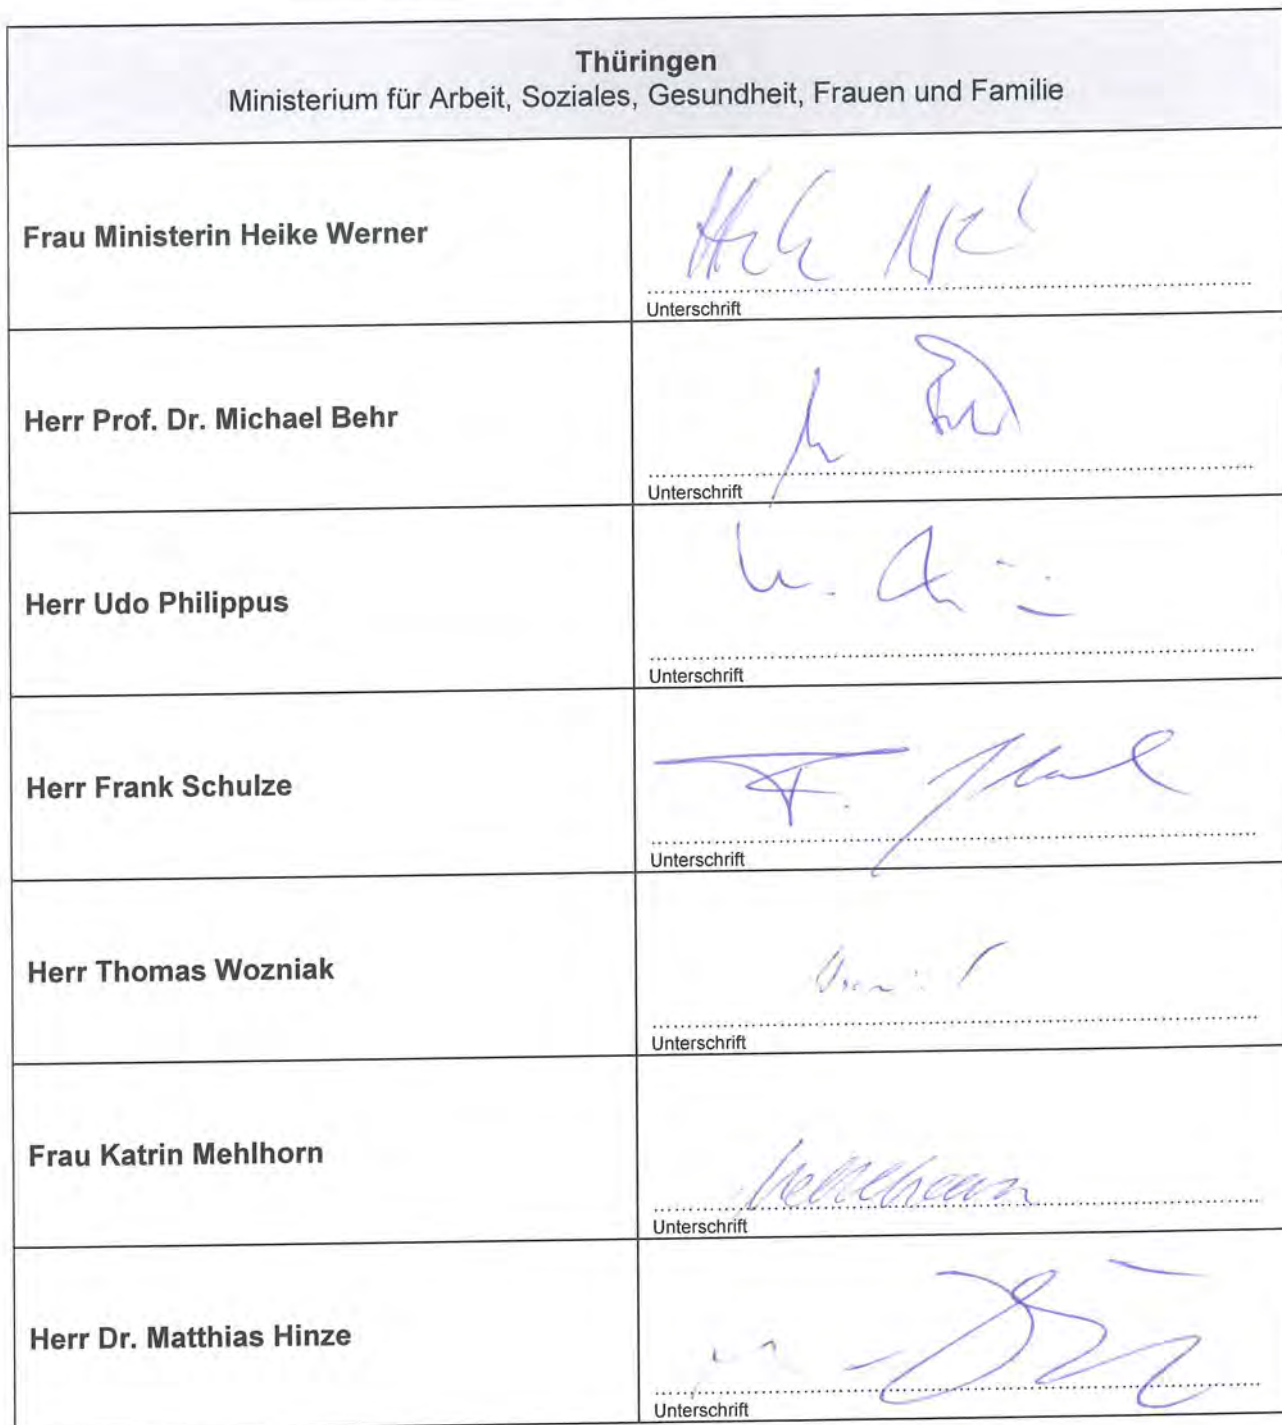 Thüringen
Ministerium für Arbeit, Soziales, Gesundheit, Frauen und Familie
Frau Ministerin Heike Werner
Unterschrift
Herr Prof. Dr. Michael Behr
Unterschrift
Herr Udo Philippus
Unterschrift
Herr Frank Schulze
Unterschrift
Herr Thomas Wozniak
Unterschrift
Frau Katrin Mehlhorn
Mehlhorn
Unterschrift
Herr Dr. Matthias Hinze
Unterschrift